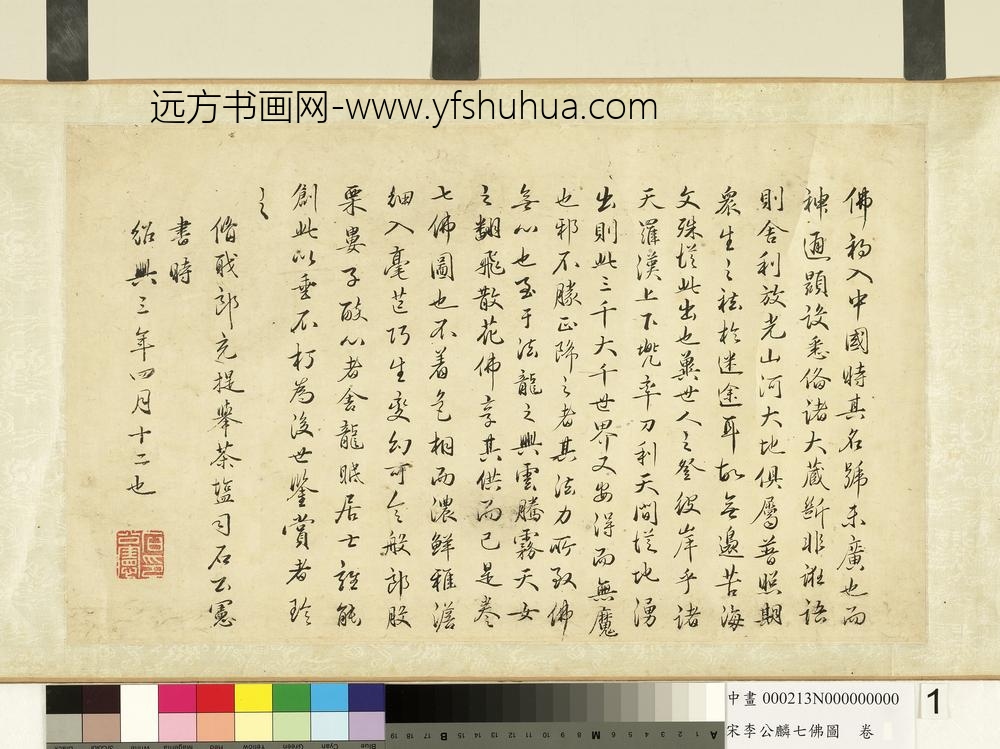 远方书画网-www.yfshuhua.com
佛初入中國時其名號未廣也而
神通顯設悉備諸大藏斷非誑語
則舍利放光山河大地俱屬普照期
眾生之袪於迷途耳故無邊苦海
文殊從此出也冀世人之登彼岸乎諸
天羅漢上下兜率刀利天間從地湧
出則此三千大千世界又安得而無魔
也邪不勝正降之者其法力所致佛
無心也至于法龍之興雲騰霧天女
之翻飛散花佛享其供而已是卷
七佛圖也不着色相而濃鮮雅澹
細入毫芒巧生變幻可令般郎股
栗晏子酸心者舍龍眠居士誰能
創此以垂不朽為後世鑒賞者珍
之
脩職郎充提舉茶塩司石公憲
書時
紹興三年四月十二也
中畫 000213N000000000
宋李公麟七佛圖 卷
1